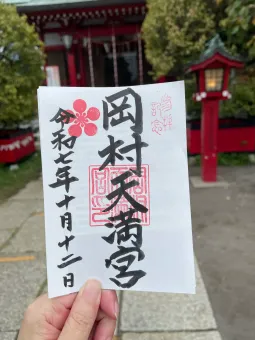 岡村天満宮
令和七年十月十二日